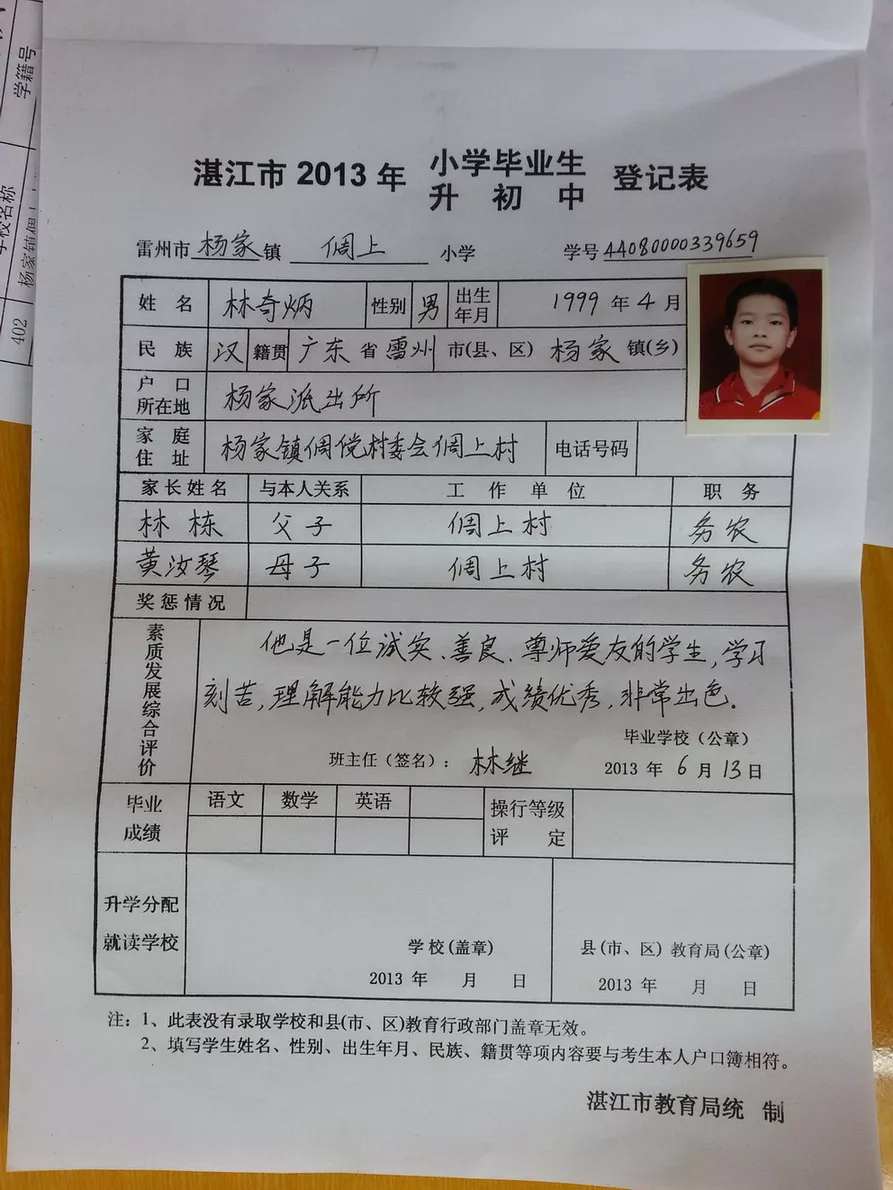 学籍号
学校名称
402
湛江市 2013 年 小学毕业生 升初中 登记表
雷州市 杨家 镇 倜上 小学 学号 44080000339659
姓名 林奇炳 性别 男 出生年月 1999 年 4 月
民族 汉 籍贯 广东 省 雷州 市(县、区) 杨家 镇(乡)
户口所在地 杨家派出所
家庭住址 杨家镇倜傥村委会倜上村 电话号码
家长姓名 与本人关系 工作单位 职务
林栋 父子 倜上村 务农
黄汝琴 母子 倜上村 务农
奖惩情况
素质发展综合评价
他是一位诚实、善良、尊师爱友的学生,学习
刻苦,理解能力比较强,成绩优秀,非常出色。
毕业学校(公章)
班主任(签名): 林继 2013 年 6 月 13 日
毕业成绩 语文 数学 英语 操行等级评定
升学分配
就读学校
学校(盖章) 县(市、区)教育局(公章)
2013 年 月 日 2013 年 月 日
注:1、此表没有录取学校和县(市、区)教育行政部门盖章无效。
2、填写学生姓名、性别、出生年月、民族、籍贯等项内容要与考生本人户口簿相符。
湛江市教育局统 制